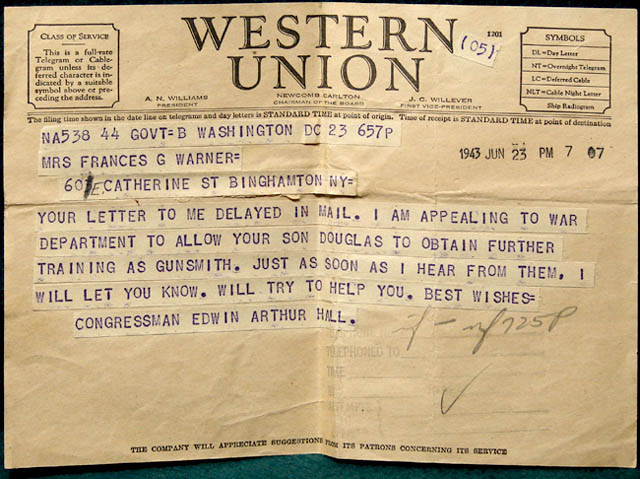 CLASS OF SERVICE
This is a full-rate
Telegram or Cable-
gram unless its de-
ferred character is in-
dicated by a suitable
symbol above or pre-
ceding the address.
WESTERN
UNION
1201
(05)
A. N. WILLIAMS
PRESIDENT
NEWCOMB CARLTON
CHAIRMAN OF THE BOARD
J. C. WILLEVER
FIRST VICE-PRESIDENT
SYMBOLS
DL=Day Letter
NT=Overnight Telegram
LC=Deferred Cable
NLT=Cable Night Letter
Ship Radiogram
The filing time shown in the date line on telegrams and day letters is STANDARD TIME at point of origin. Time of receipt is STANDARD TIME at point of destination
NA538 44 GOVT=B WASHINGTON DC 23 657P
1943 JUN 23 PM 7 07
MRS FRANCES G WARNER=
60 E CATHERINE ST BINGHAMTON NY=
YOUR LETTER TO ME DELAYED IN MAIL. I AM APPEALING TO WAR
DEPARTMENT TO ALLOW YOUR SON DOUGLAS TO OBTAIN FURTHER
TRAINING AS GUNSMITH. JUST AS SOON AS I HEAR FROM THEM, I
WILL LET YOU KNOW. WILL TRY TO HELP YOU. BEST WISHES=
CONGRESSMAN EDWIN ARTHUR HALL.
725P
TELEPHONED TO
TIME
THE COMPANY WILL APPRECIATE SUGGESTIONS FROM ITS PATRONS CONCERNING ITS SERVICE